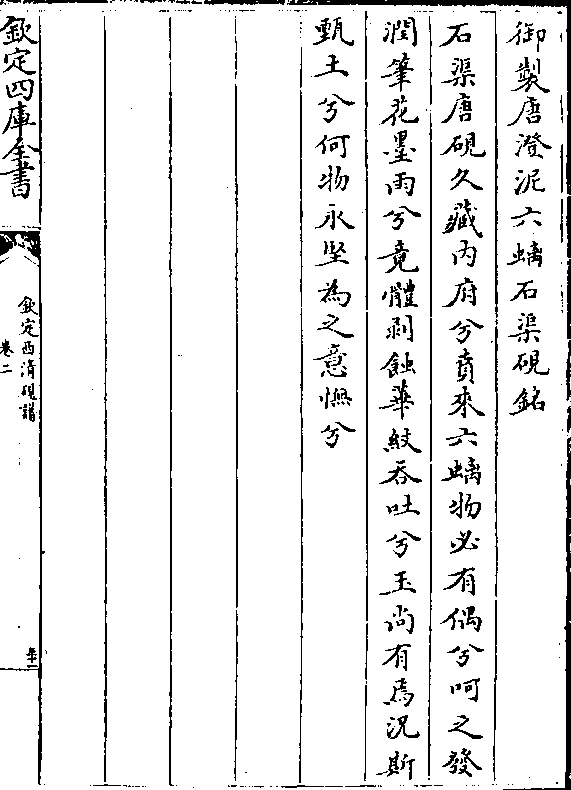 御製唐澄泥六螭石渠硯銘
石渠唐硯久藏内府兮賁來六螭物必有偶兮呵之發
潤筆花墨雨兮竟體剥蝕華紋吞吐兮玉尚有焉況斯
甄土兮何物永堅為之意憮兮
欽定四庫全書
欽定西清硯譜
卷二